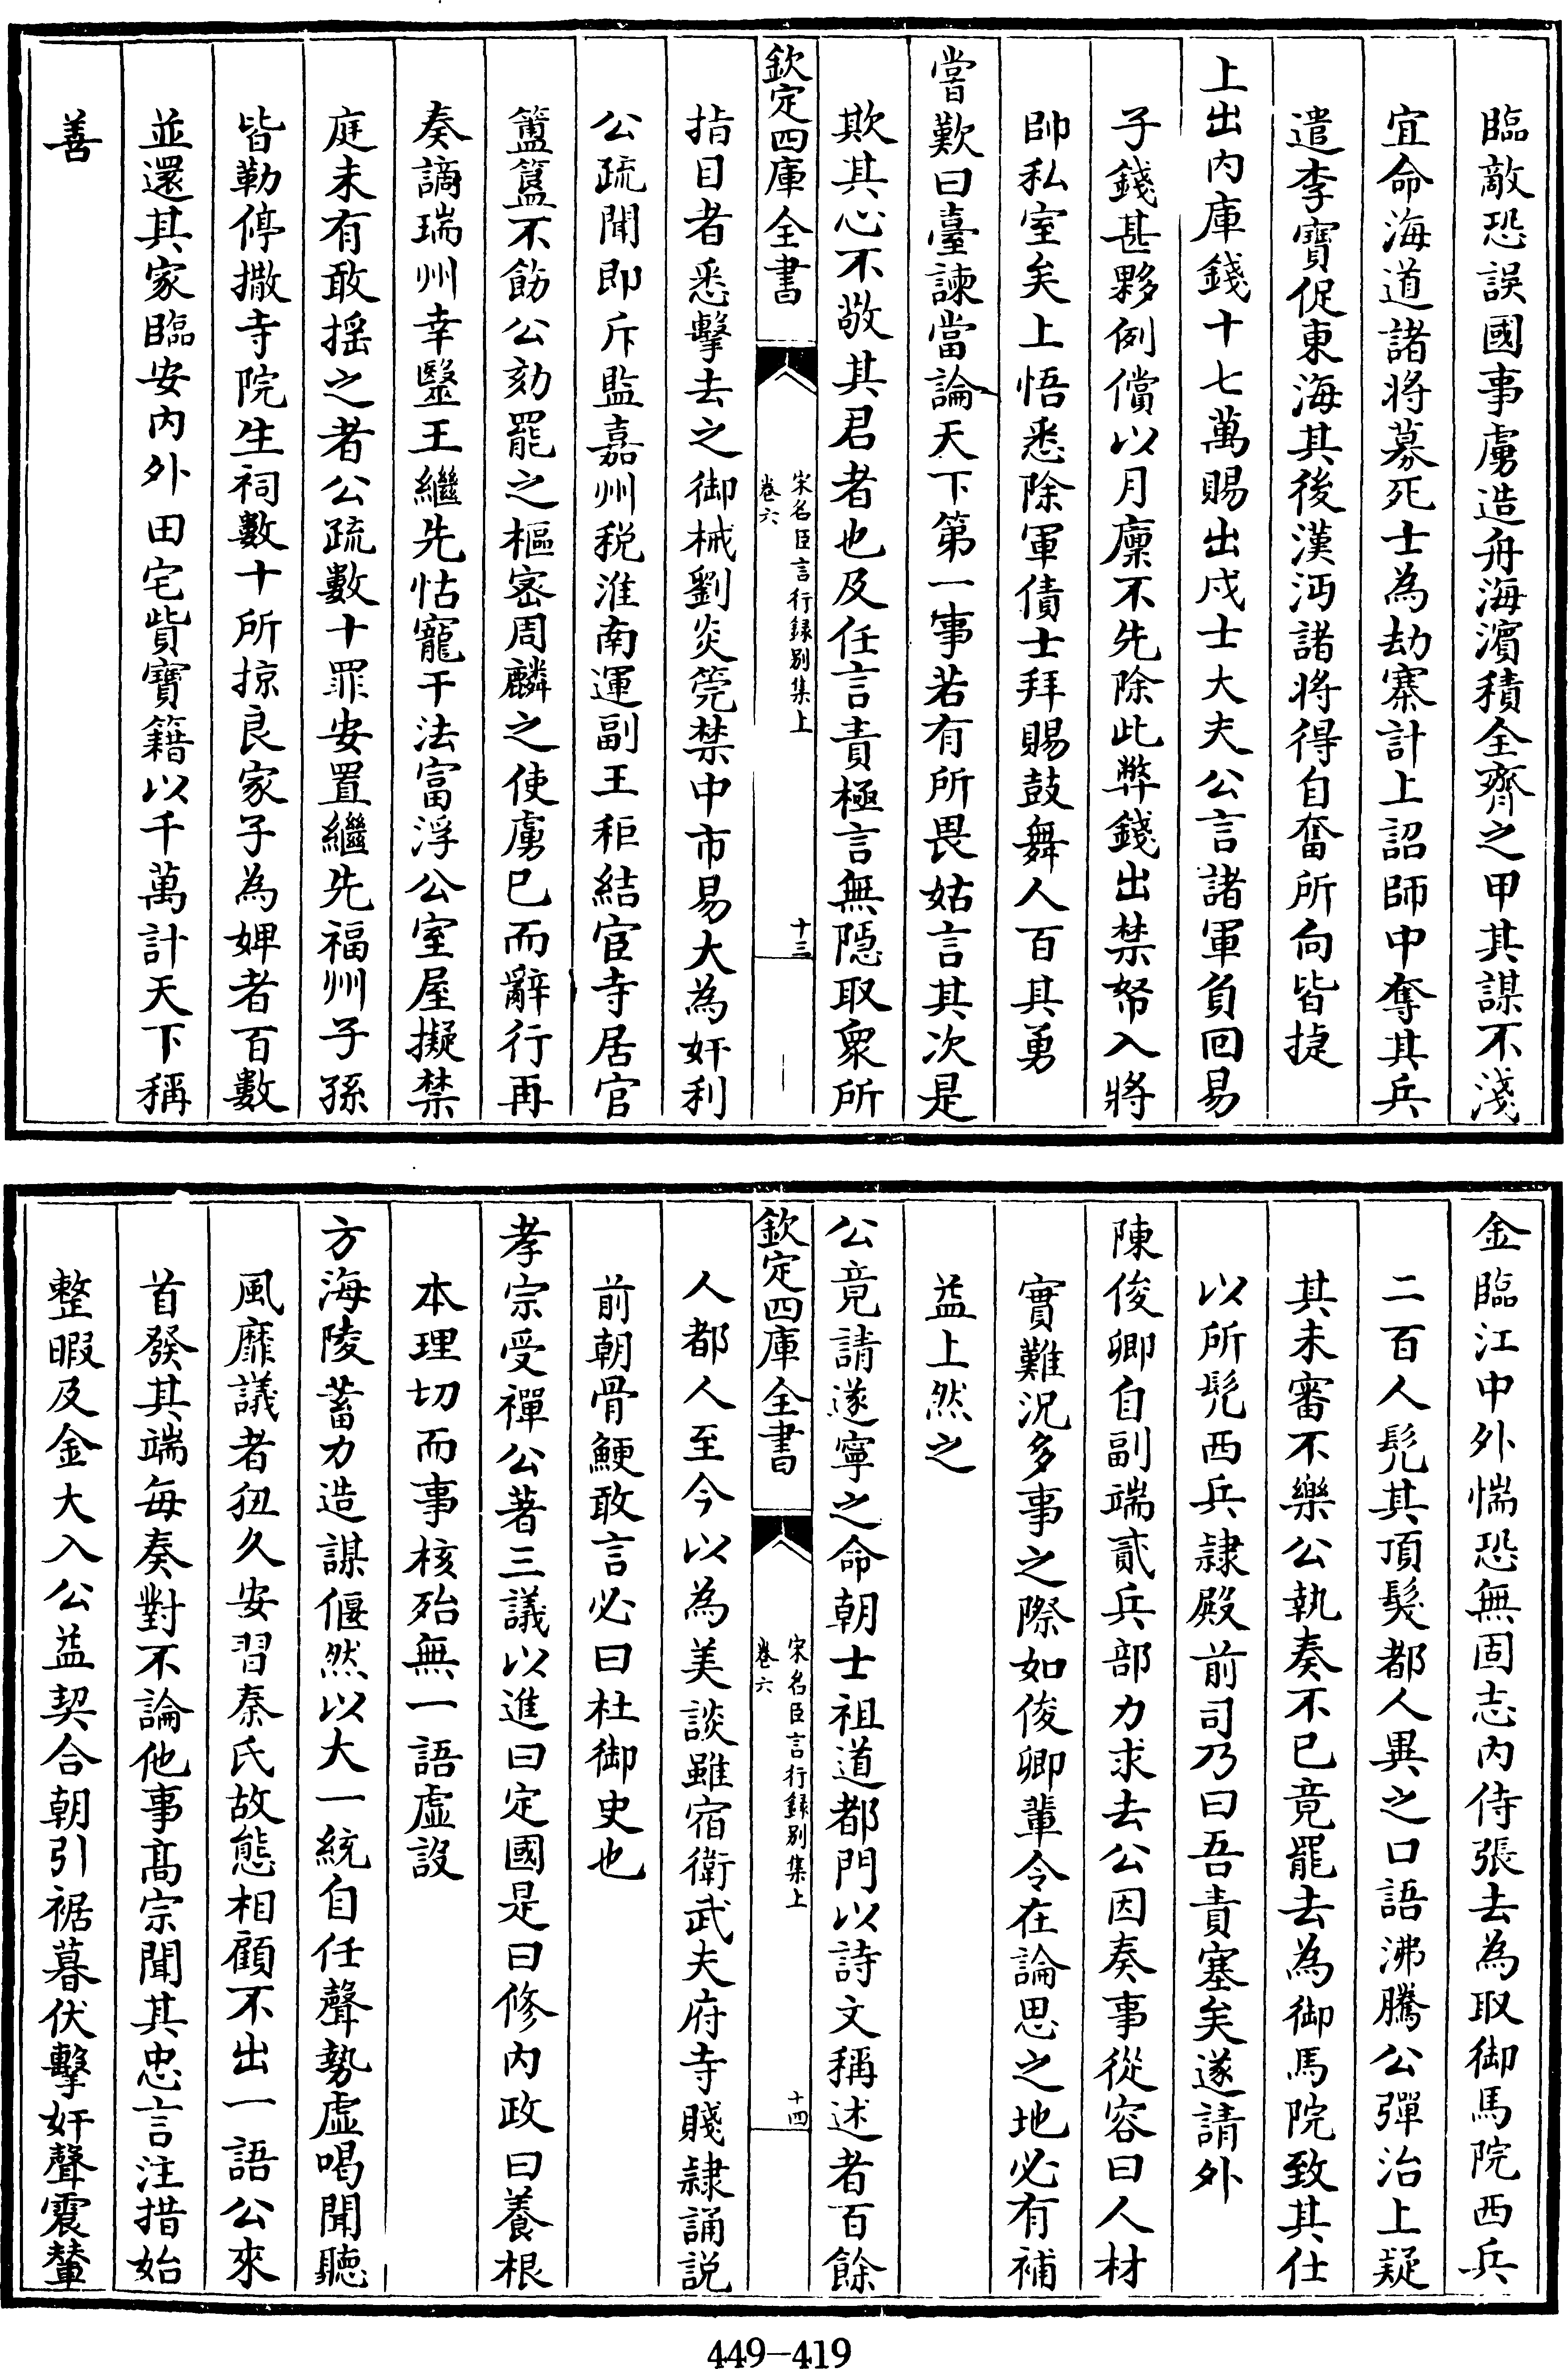 臨敵恐誤國事虜造舟海濵積全齊之甲其謀不淺
宜命海道諸將募死士為劫寨計上詔師中奪其兵
遣李寶促東海其後漢沔諸將得自奮所向皆捷
上出内庫錢十七萬賜出戍士大夫公言諸軍負回易
子錢甚夥例償以月廩不先除此弊錢出禁帑入將
帥私室矣上悟悉除軍債士拜賜鼓舞人百其勇
嘗歎曰臺諫當論天下第一事若有所畏姑言其次是
欺其心不敬其君者也及任言責極言無隱取衆所
欽定四庫全書
宋名臣言行録别集上
卷六
十三
指目者悉擊去之御械劉炎筦禁中市易大為奸利
公疏聞即斥監嘉州税淮南運副王秬結宦寺居官
簠簋不飭公劾罷之樞宻周麟之使虜已而辭行再
奏謫瑞州幸毉王繼先怙寵干法富浮公室屋擬禁
庭未有敢揺之者公疏數十罪安置繼先福州子孫
皆勒停撤寺院生祠數十所掠良家子為婢者百數
並還其家臨安内外田宅貲寶籍以千萬計天下稱
善
金臨江中外惴恐無固志内侍張去為取御馬院西兵
二百人髠其頂髮都人異之口語沸騰公彈治上疑
其未審不樂公執奏不已竟罷去為御馬院致其仕
以所髠西兵隷殿前司乃曰吾責塞矣遂請外
陳俊卿自副端貳兵部力求去公因奏事從容曰人材
實難況多事之際如俊卿輩令在論思之地必有補
益上然之
公竟請遂寧之命朝士祖道都門以詩文稱述者百餘
欽定四庫全書
宋名臣言行録别集上
卷六
十四
人都人至今以為美談雖宿衛武夫府寺賤隷誦説
前朝骨鯁敢言必曰杜御史也
孝宗受禪公著三議以進曰定國是曰修内政曰養根
本理切而事核殆無一語虚設
方海陵蓄力造謀偃然以大一統自任聲勢虚喝聞聽
風靡議者狃久安習秦氏故態相顧不出一語公來
首發其端每奏對不論他事髙宗聞其忠言注措始
整暇及金大入公益契合朝引裾暮伏擊奸聲震輦
449-419